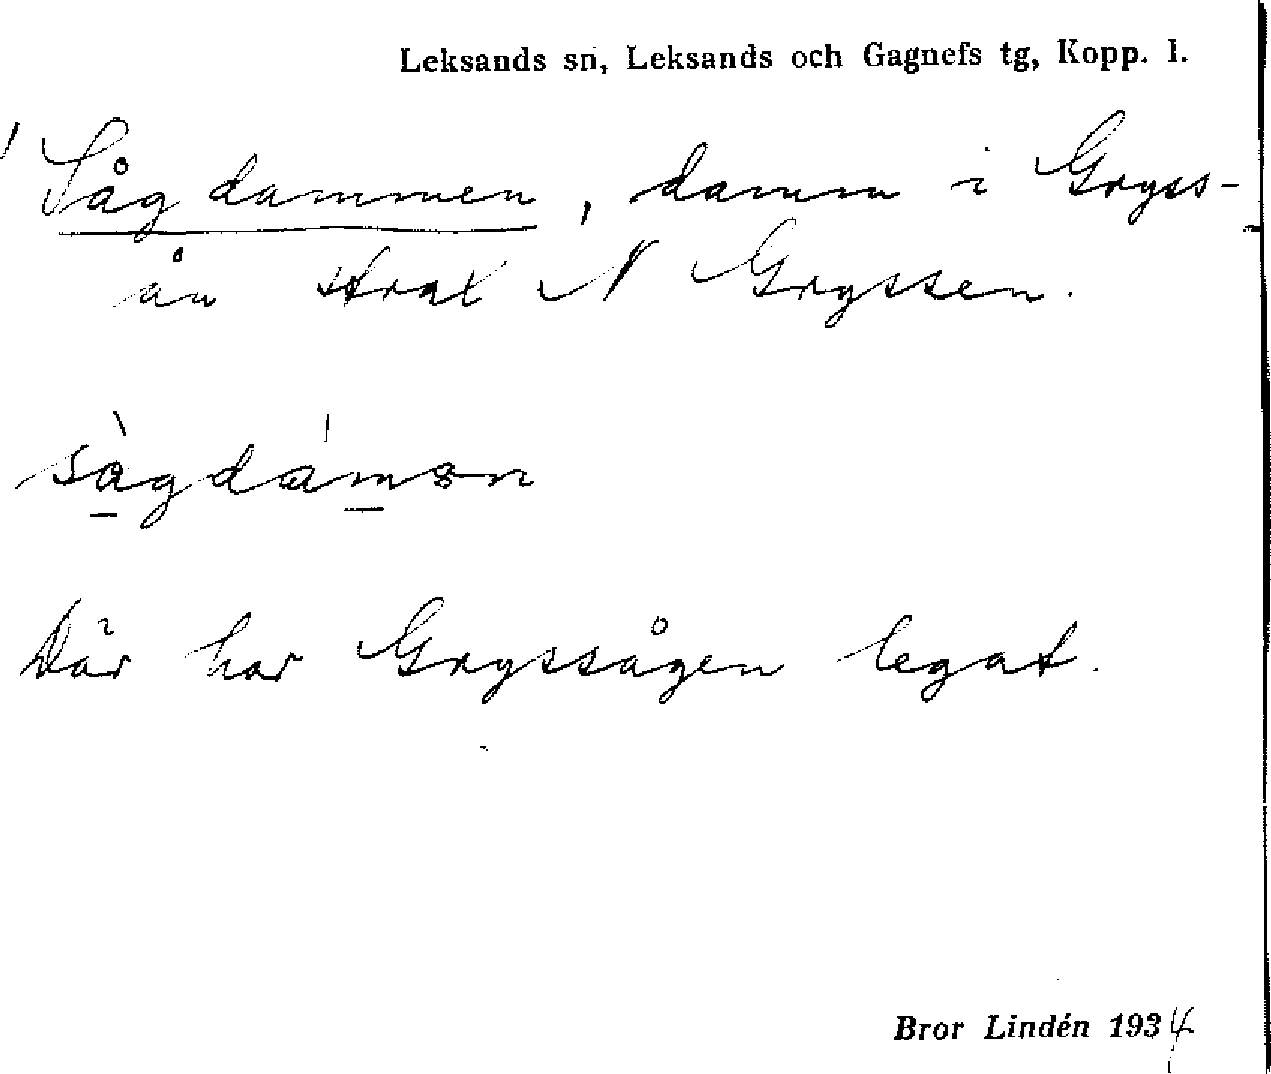 Leksands sn, Leksands och Gagnefs tg, Kopp. l.
Sågdammen, damm i Gryss-
ån strax N Gryssen.
sàgdámən
Där har Gryssågen legat.
Bror Lindén 1934